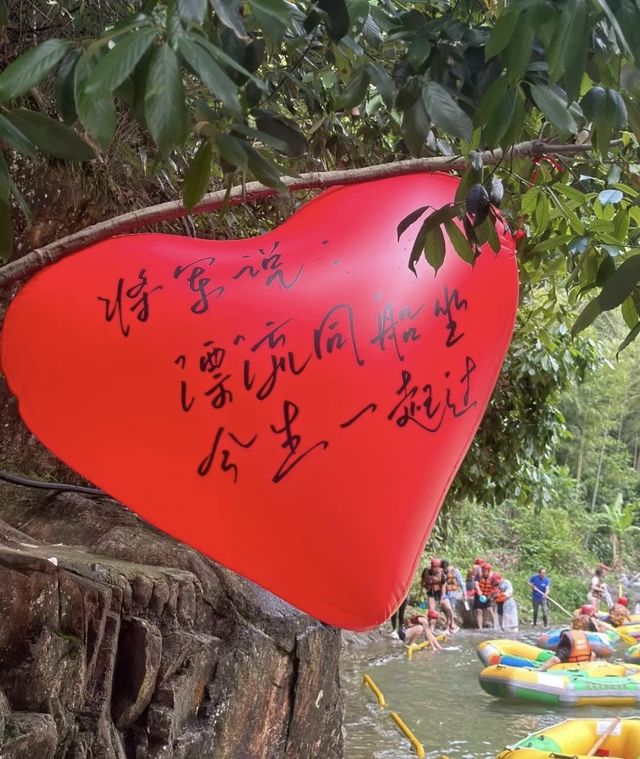 将军说：
漂流同船坐
今生一起过